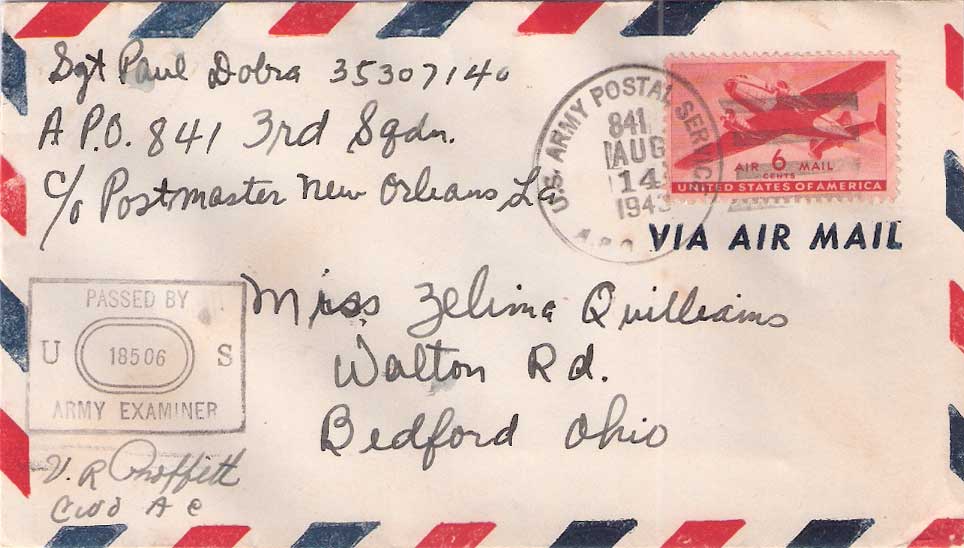 Sgt Paul Dobra 35307140
A.P.O. 841 3rd Sqdn.
c/o Postmaster New Orleans, La
U.S. ARMY POSTAL SERVICE
841
AUG
14
1943
A.P.O.
AIR 6 MAIL
CENTS
UNITED STATES OF AMERICA
VIA AIR MAIL
PASSED BY
U 18506 S
ARMY EXAMINER
V. R. Proffitt
CWO A C
Miss Zelima Quilliams
Walton Rd.
Bedford Ohio